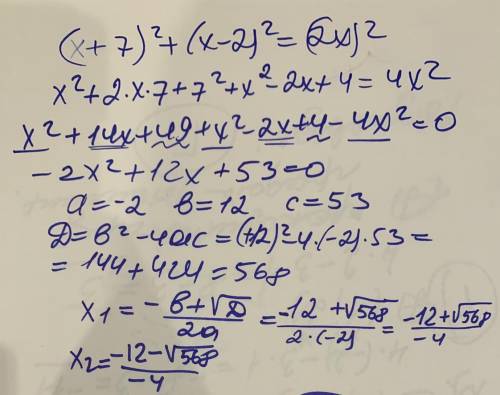 (x+7)²+(x-2)²=(2x)²
x²+2·x·7+7²+x²-2x+4=4x²
x²+14x+49+x²-2x+4-4x²=0
-2x²+12x+53=0
a=-2 b=12 c=53
D=b²-4ac=(+12)²-4·(-2)·53=
=144+424=568
x₁=(-b+√D)/(2a)=(-12+√568)/(2·(-2))=(-12+√568)/(-4)
x₂=(-12-√568)/(-4)